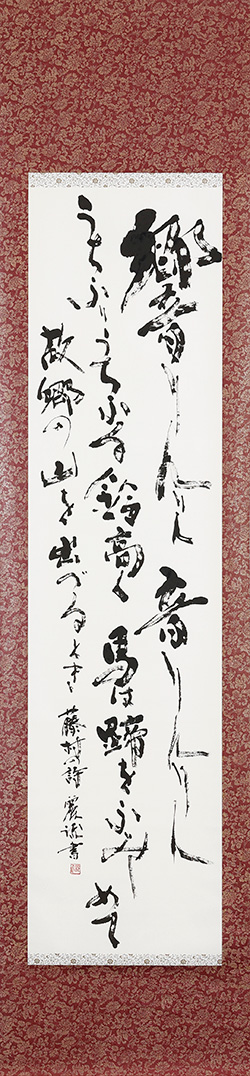 響りんりん 音りんりん
うちふりうちふる鈴高く 馬は蹄をふみしめて
故郷の山を出づるとき 藤村の詩 書